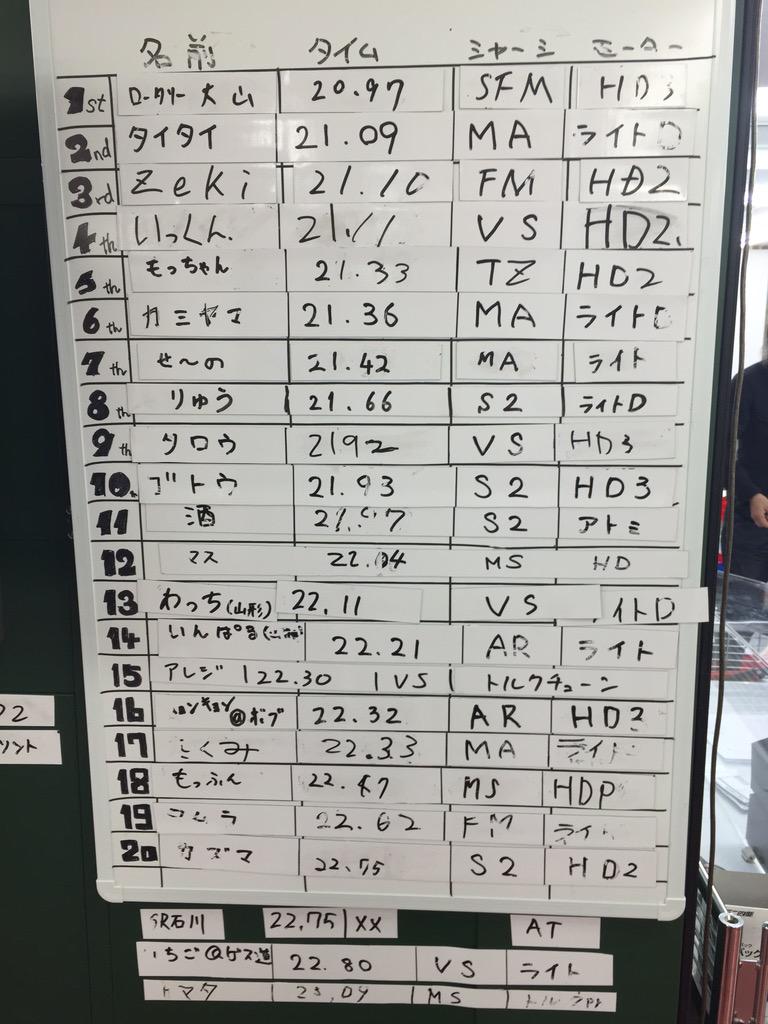 名前 タイム シャーシ モーター
1st ロータリー大山 20.97 SFM HD3
2nd タイタイ 21.09 MA ライトD
3rd Zeki 21.10 FM HD2
4th いっくん 21.11 VS HD2.
5th もっちゃん 21.33 TZ HD2
6th カミヤマ 21.36 MA ライトD
7th せ〜の 21.42 MA ライト
8th りゅう 21.66 S2 ライトD
9th タロウ 2192 VS HD3
10th ゴトウ 21.93 S2 HD3
11 酒 21.97 S2 アトミ
12 マス 22.04 MS HD
13 わっち(山形) 22.11 VS イトD
14 いんぱるる 22.21 AR ライト
15 アレジ 22.30 VS トルクチューン
16 @ボブ 22.32 AR HD2
17 22.33 MA ライト
18 もっふん 22.47 MS HDP
19 22.62 FM ライト
20 カズマ 22.75 S2 HD2
SR石川 22.75 XX AT
いちご@ゲス道 22.80 VS ライト
トマタ 23.09 MS